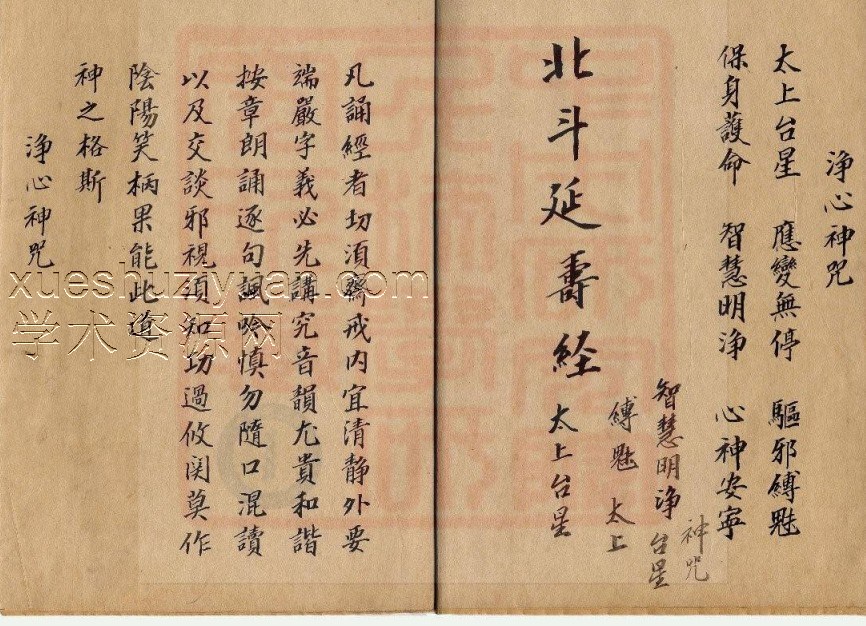 淨心神咒
太上台星　應變無停　驅邪縛魅
保身護命　智慧明淨　心神安寧
神咒
智慧明淨　台星
縛魅　太上
北斗延壽経　太上台星
凡誦經者切須齋戒内宜清静外要
端嚴字義必先講究音韻尤貴和諧
按章朗誦逐句諷唫慎勿隨口混讀
以及交談邪視須知功過攸関莫作
陰陽笑柄果能此道
神之格斯
淨心神咒
xueshuziyuan.com
学术资源网